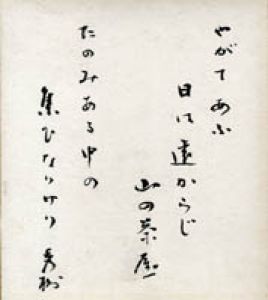 やがてあふ
日は遠からじ
山の茶屋
たのみある中の
集ひなりけり 秀樹